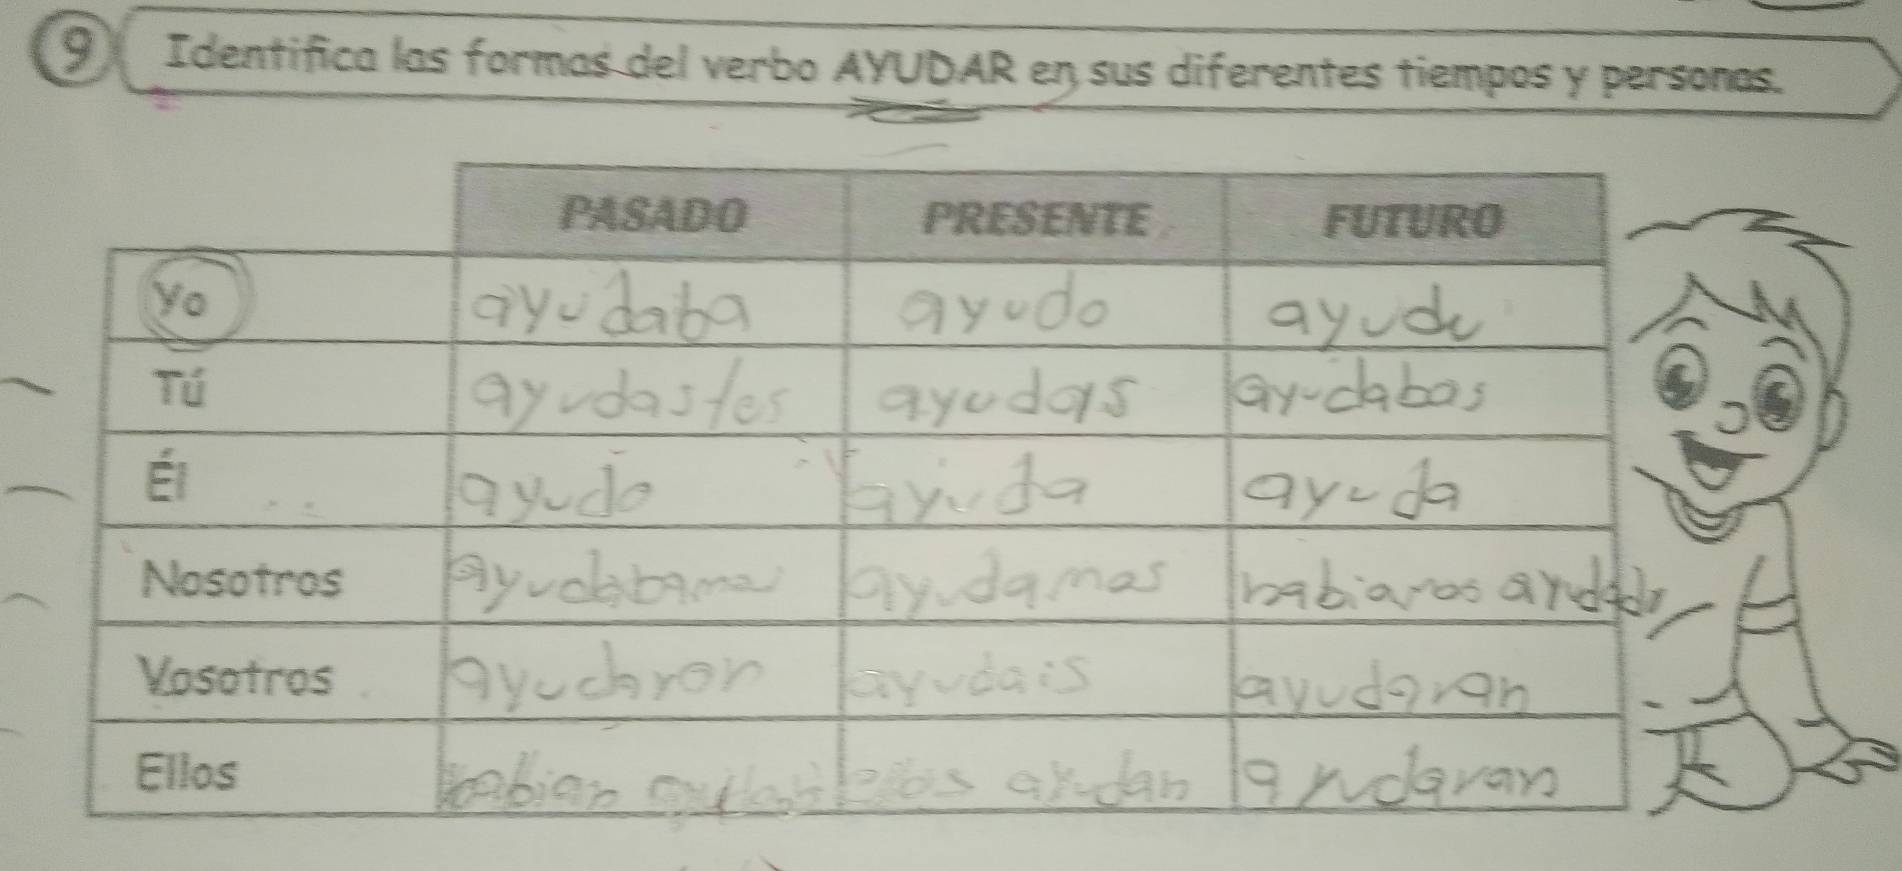 9 Identifica las formas del verbo AYUDAR en sus diferentes tiempos y personas.
PASADO PRESENTE FUTURO
Yo ayudaba ayudo ayudu
Tú ayudastes ayudas ayudabas
Él ayudo ayuda ayuda
Nosotros ayudabamos ayudamos habiamos
Vosotros ayudaron ayudais ayudaran
Ellos habian ellos ayudan ayudaran